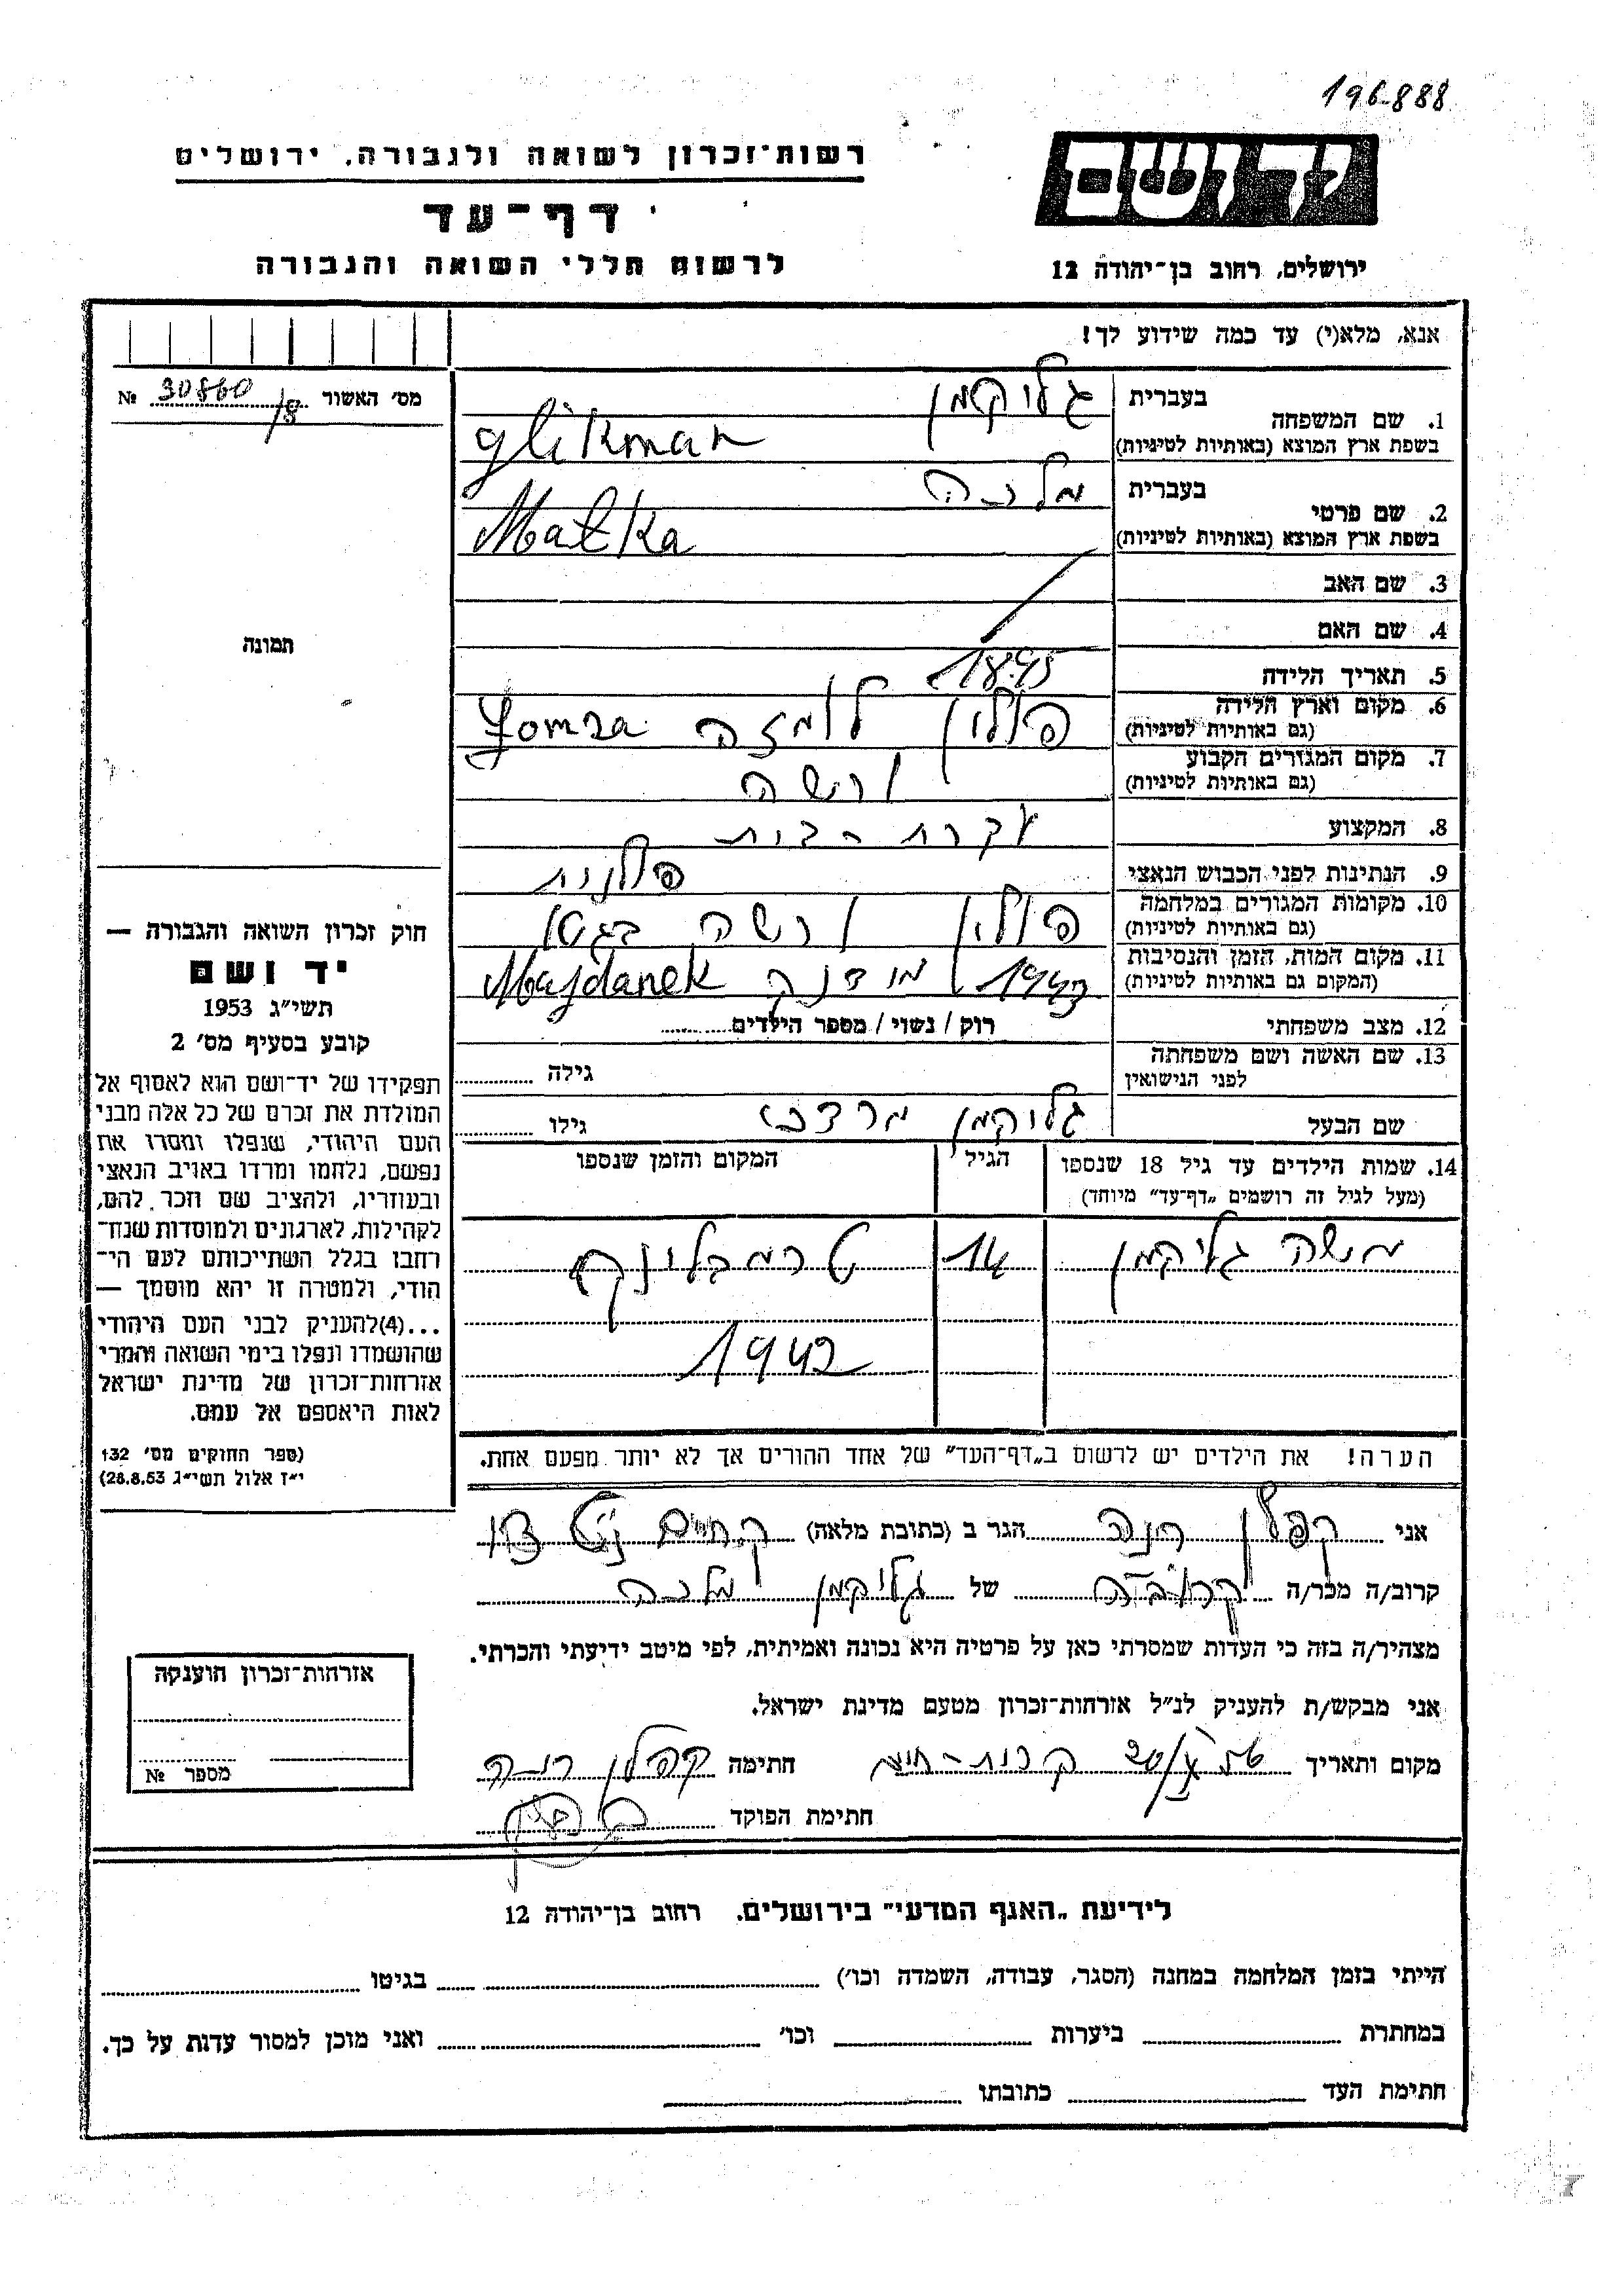 196888
יד ושם
רשות־זכרון לשואה ולגבורה, ירושלים
דף־עד
ירושלים, רחוב בן־יהודה 12
לרשום חללי השואה והגבורה
אנא, מלא(י) עד כמה שידוע לך!
מס׳ האשור 30860/8 №
1. שם המשפחה
בעברית גליקמן
בשפת ארץ המוצא (באותיות לטיניות) glikman
2. שם פרטי
בעברית מלכה
בשפת ארץ המוצא (באותיות לטיניות) Małka
3. שם האב
4. שם האם
5. תאריך הלידה 1895
6. מקום וארץ הלידה פולין לומזה Łomza
(גם באותיות לטיניות)
7. מקום המגורים הקבוע ורשה
(גם באותיות לטיניות)
8. המקצוע עקרת הבית
9. הנתינות לפני הכבוש הנאצי פולנית
10. מקומות המגורים במלחמה פולין ורשה בגטו
(גם באותיות לטיניות)
11. מקום המות, הזמן והנסיבות 1943 מידנק Majdanek
(המקום גם באותיות לטיניות)
12. מצב משפחתי רוק / נשוי / מספר הילדים
13. שם האשה ושם משפחתה
לפני הנישואין גילה
שם הבעל גליקמן מרדכי גילו
14. שמות הילדים עד גיל 18 שנספו הגיל המקום והזמן שנספו
(מעל לגיל זה רושמים „דף־עד״ מיוחד)
משה גליקמן 14 טרמבלינקה
1942
הערה! את הילדים יש לרשום ב„דף־העד״ של אחד ההורים אך לא יותר מפעם אחת.
תמונה
חוק זכרון השואה והגבורה —
יד ושם
תשי״ג 1953
קובע בסעיף מס׳ 2
תפקידו של יד־ושם הוא לאסוף אל
המולדת את זכרם של כל אלה מבני
העם היהודי, שנפלו ומסרו את
נפשם, נלחמו ומרדו באויב הנאצי
ובעוזריו, ולהציב שם וזכר להם,
לקהילות, לארגונים ולמוסדות שנח־
רבו בגלל השתייכותם לעם הי־
הודי, ולמטרה זו יהא מוסמך —
...(4)להעניק לבני העם היהודי
שהושמדו ונפלו בימי השואה והמרי
אזרחות־זכרון של מדינת ישראל
לאות היאספם אל עמם.
(ספר החוקים מס׳ 132
י״ז אלול תשי״ג 28.8.53)
אני קפלן חנה הגר ב (כתובת מלאה)
קרוב/ה מכר/ה קרובה של גליקמן מלכה
מצהיר/ה בזה כי העדות שמסרתי כאן על פרטיה היא נכונה ואמיתית, לפי מיטב ידיעתי והכרתי.
אני מבקש/ת להעניק לנ״ל אזרחות־זכרון מטעם מדינת ישראל.
מקום ותאריך קרית-חיים חתימה קפלן חנה
חתימת הפוקד
אזרחות־זכרון הוענקה
מספר №
לידיעת „האגף המדעי״ בירושלים. רחוב בן־יהודה 12
הייתי בזמן המלחמה במחנה (הסגר, עבודה, השמדה וכו׳) בגיטו
במחתרת ביערות וכו׳ ואני מוכן למסור עדות על כך.
חתימת העד כתובתו